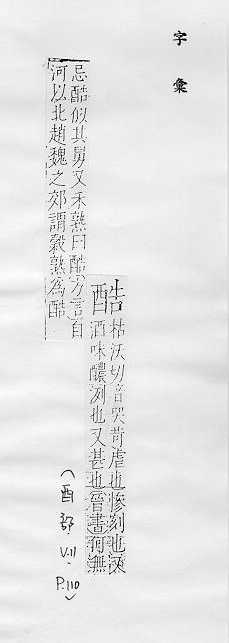 字彙
酷
枯沃切音哭苛虐也慘刻也又
酒味醲洌也又甚也晉書何無
忌酷似其舅又禾熟曰酷方言自
河以北趙魏之郊謂穀熟為酷
(酉部 V.11. P.110)